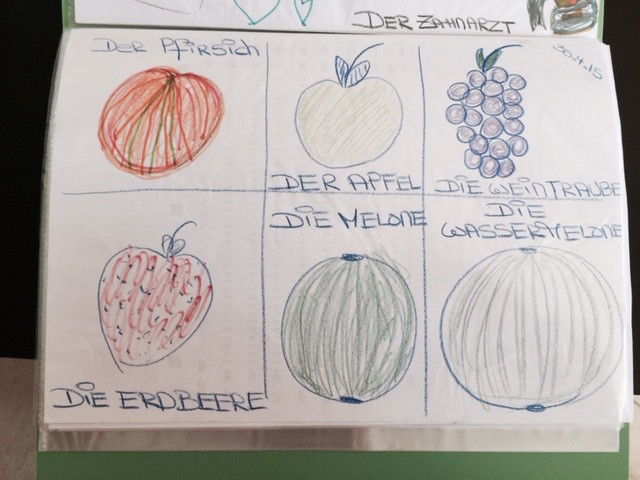 DER ZAHNARZT
Der Pfirsich
30.4.15
DER APFEL
DIE WEINTRAUBE
DIE MELONE
DIE
WASSERMELONE
DIE ERDBEERE